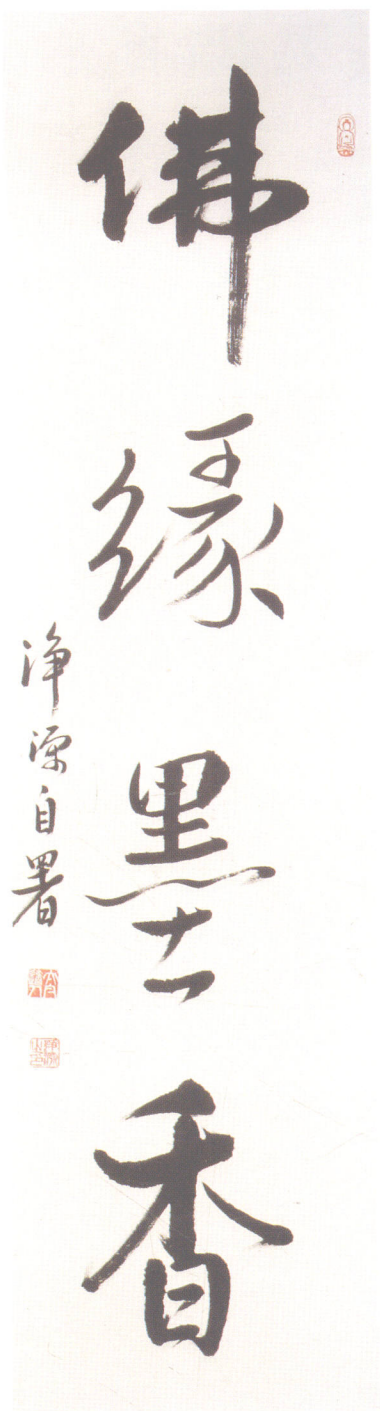 佛緣墨香
淨源自署